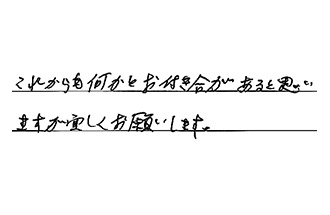 これからも何かとお付き合いがあると思い
ますが宜しくお願いします。